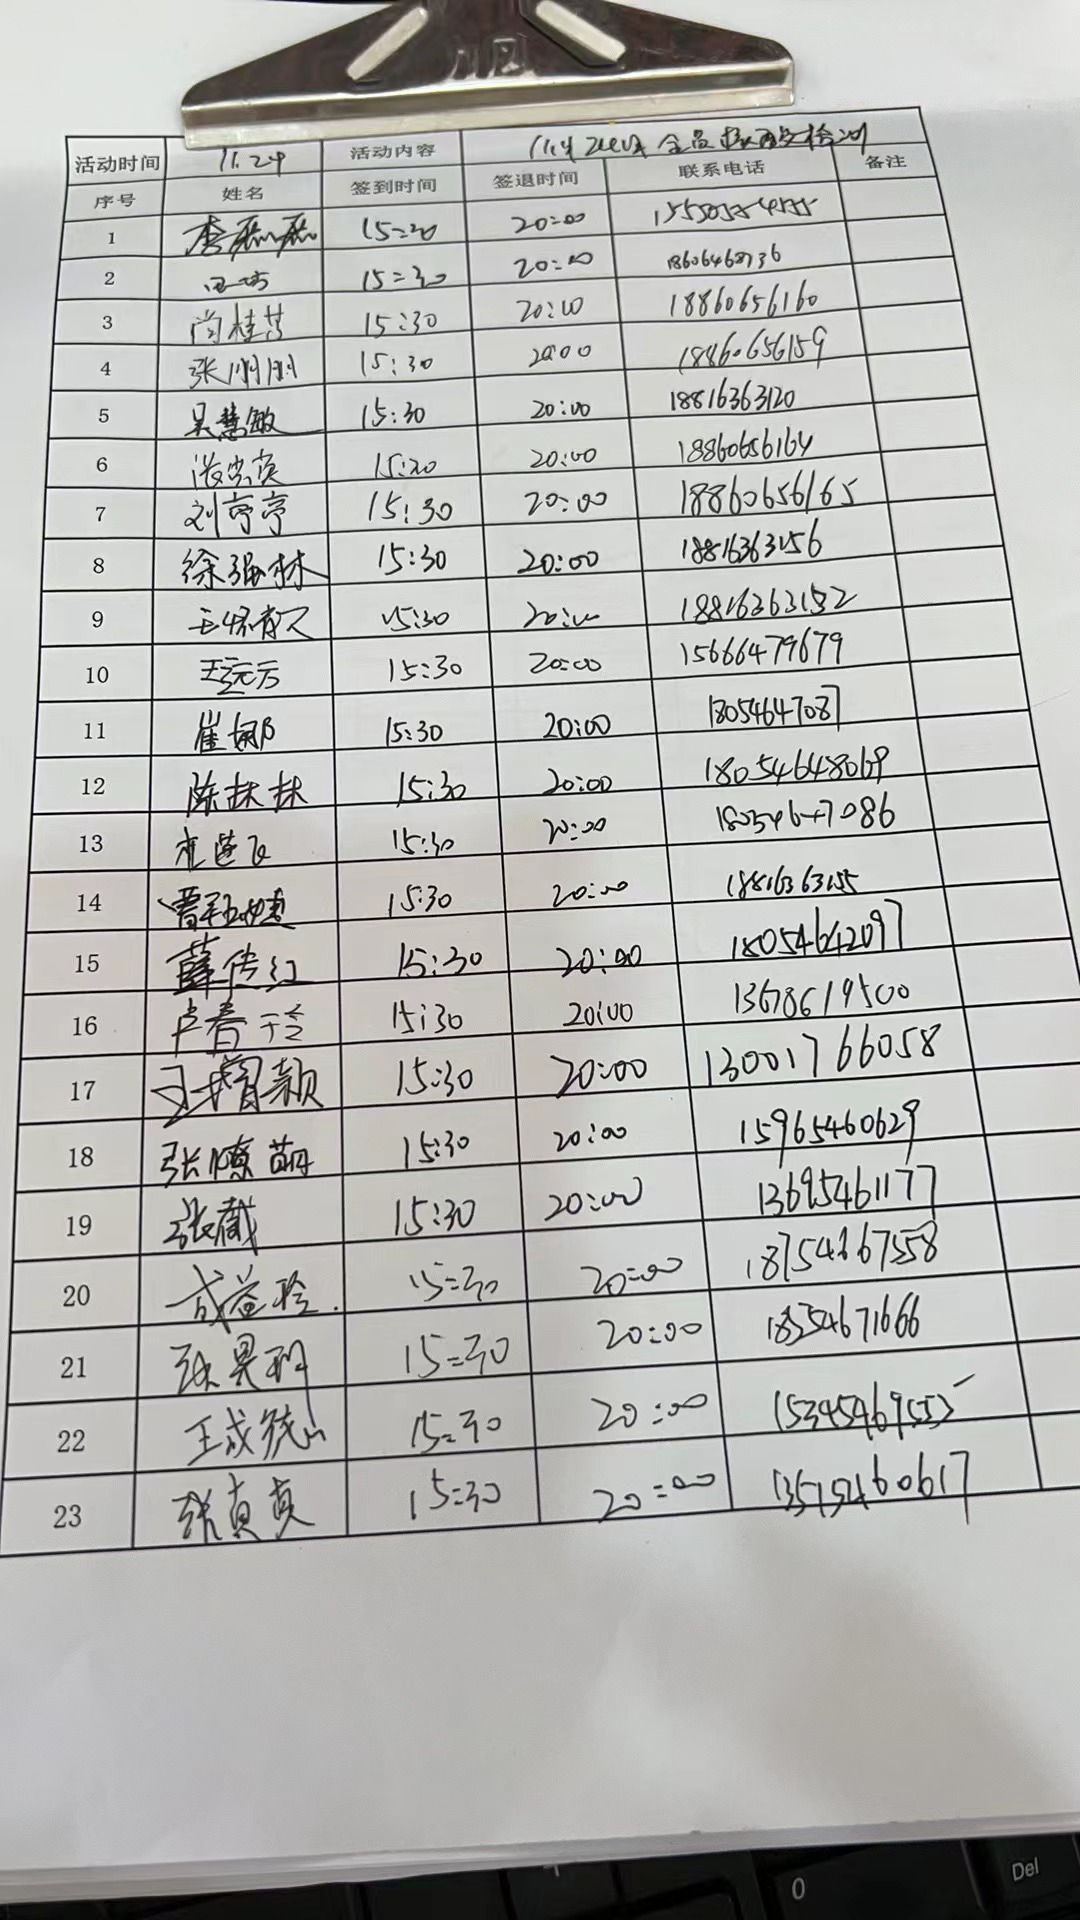 活动时间 11.24 活动内容 全员核酸检测
序号 姓名 签到时间 签退时间 联系电话 备注
1 李磊磊 15:30 20:00
2 15:30 20:00 18606468736
3 尚桂芳 15:30 20:00 18860656160
4 张刚刚 15:30 20:00 18860656159
5 吴慧敏 15:30 20:00 18816363120
6 15:30 20:00 18860656164
7 刘亭亭 15:30 20:00 18860656165
8 徐强林 15:30 20:00 18816363156
9 15:30 20:00 18816363152
10 15:30 20:00 15666479679
11 崔娜 15:30 20:00 18054647087
12 陈妹妹 15:30 20:00 18054648069
13 15:30 20:00 18054647086
14 15:30 20:00 18816363155
15 薛传红 15:30 20:00 18054642097
16 卢春玲 15:30 20:00 13678619500
17 15:30 20:00 13001766058
18 张燎萌 15:30 20:00 15965460629
19 张薇 15:30 20:00 13695461177
20 成益玲 15:30 20:00 18754667558
21 张昊 15:30 20:00 18254671666
22 王成 15:30 20:00 15345469555
23 张真真 15:30 20:00 13515460617
0
Del